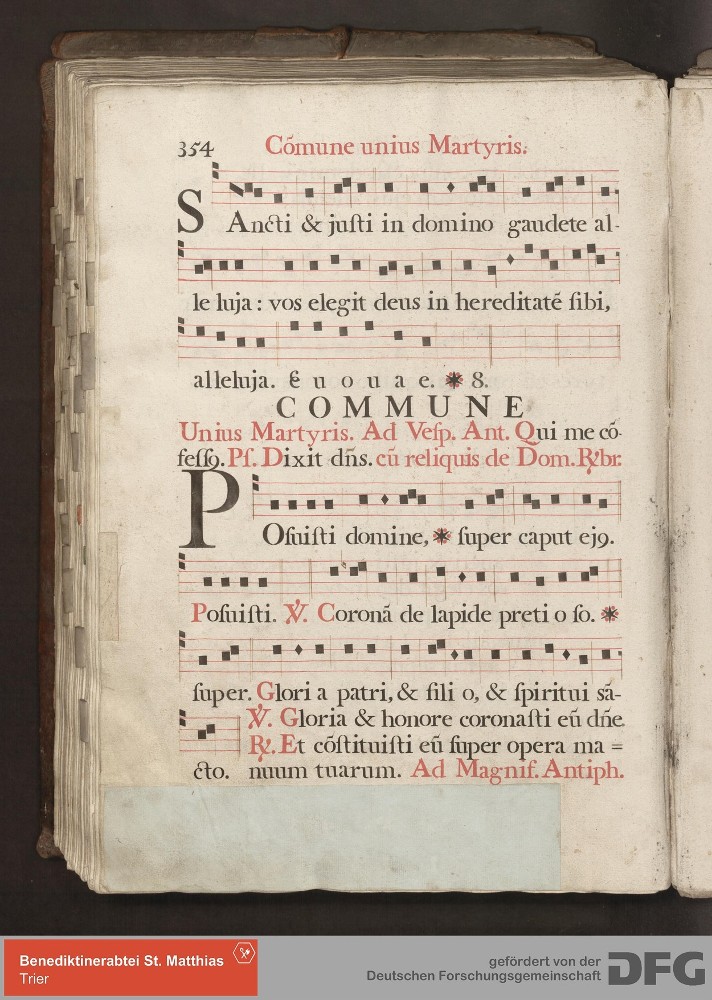 354 Cõmune unius Martyris.
SAncti & juſti in domino gaudete al-
le luja : vos elegit deus in hereditatē ſibi,
alleluja. € u o u a e. ✷ 8.
COMMUNE
Unius Martyris. Ad Veſp. Ant. Qui me cõ-
feſſꝯ. Pſ. Dixit dñs. cũ reliquis de Dom. ℟br.
POſuiſti domine, ✷ ſuper caput ejꝯ.
Poſuiſti. ℣. Coronã de lapide preti o ſo. ✷
ſuper. Glori a patri, & fili o, & ſpiritui sã-
℣. Gloria & honore coronaſti eũ dñe
℟. Et cõſtituiſti eũ ſuper opera ma =
cto. nuum tuarum. Ad Magnif. Antiph.
Benediktinerabtei St. Matthias
Trier
gefördert von der
Deutschen Forschungsgemeinschaft DFG